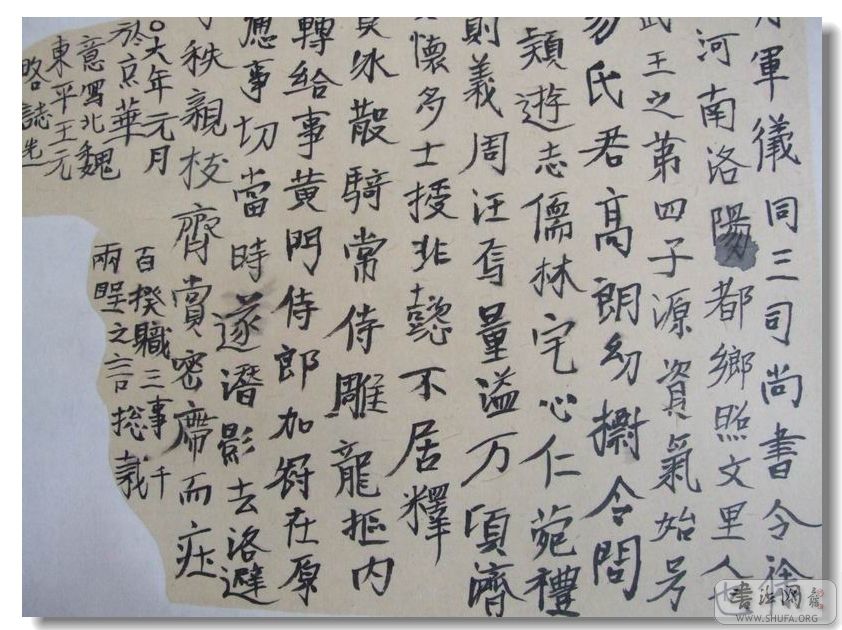 軍儀同三司尚書令徐
河南洛陽都鄉照文里人
武王之第四子源資氣始号
氏君高朗幼令問
穎遊志儒林宅心仁菀禮
則義周汪焉量溢万頃濟
懷多士授非懿不居釋
氷散騎常侍雕龍摳内
轉給事黃門侍郎加尉在原
應事切當時遂潛影去洛避
秩親枝齊賞密席而症
百揆職三事千
兩聖之言捴裁
大年元月
於京華
意寫北魏
東平王元
略誌先
書法網
WWW.SHUFA.ORG